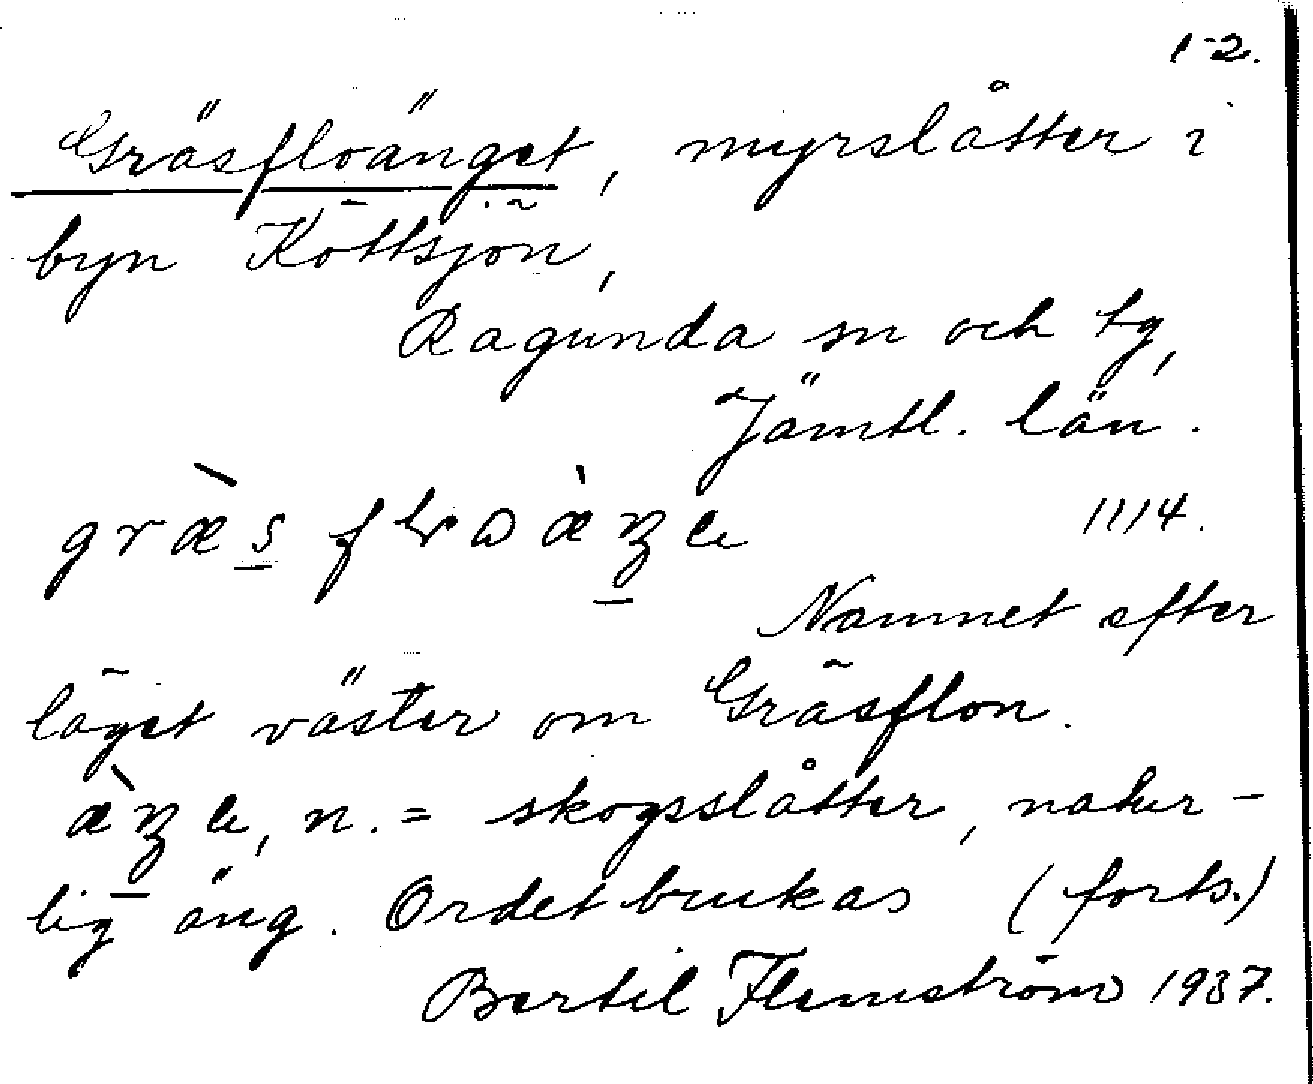 1-2.
Gräsfloänget, myrslåtter i
byn Köttsjön,
Ragunda sn och tg,
Jämtl. län.
græ̀s floæ̀ŋe 1114.
Namnet efter
läget väster om Gräsflon.
æ̀ŋe, n. = skogsslåtter, natur-
lig äng. Ordet brukas (forts.)
Bertil Flemström 1937.